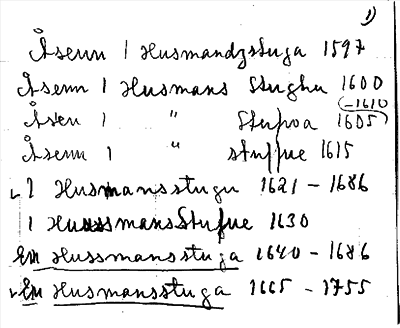 1)
Åsenn 1 Husmandzstuga 1597
Åsenn 1 Husmans Stughu 1600
(-1610)
Åsen 1 " Stufwa 1605
Åsenn 1 " stuffue 1615
1 Husmansstugu 1621 - 1686
1 HussmansStufue 1630
En Hussmansstuga 1640 - 1686
En Husmansstuga 1665 - 1755